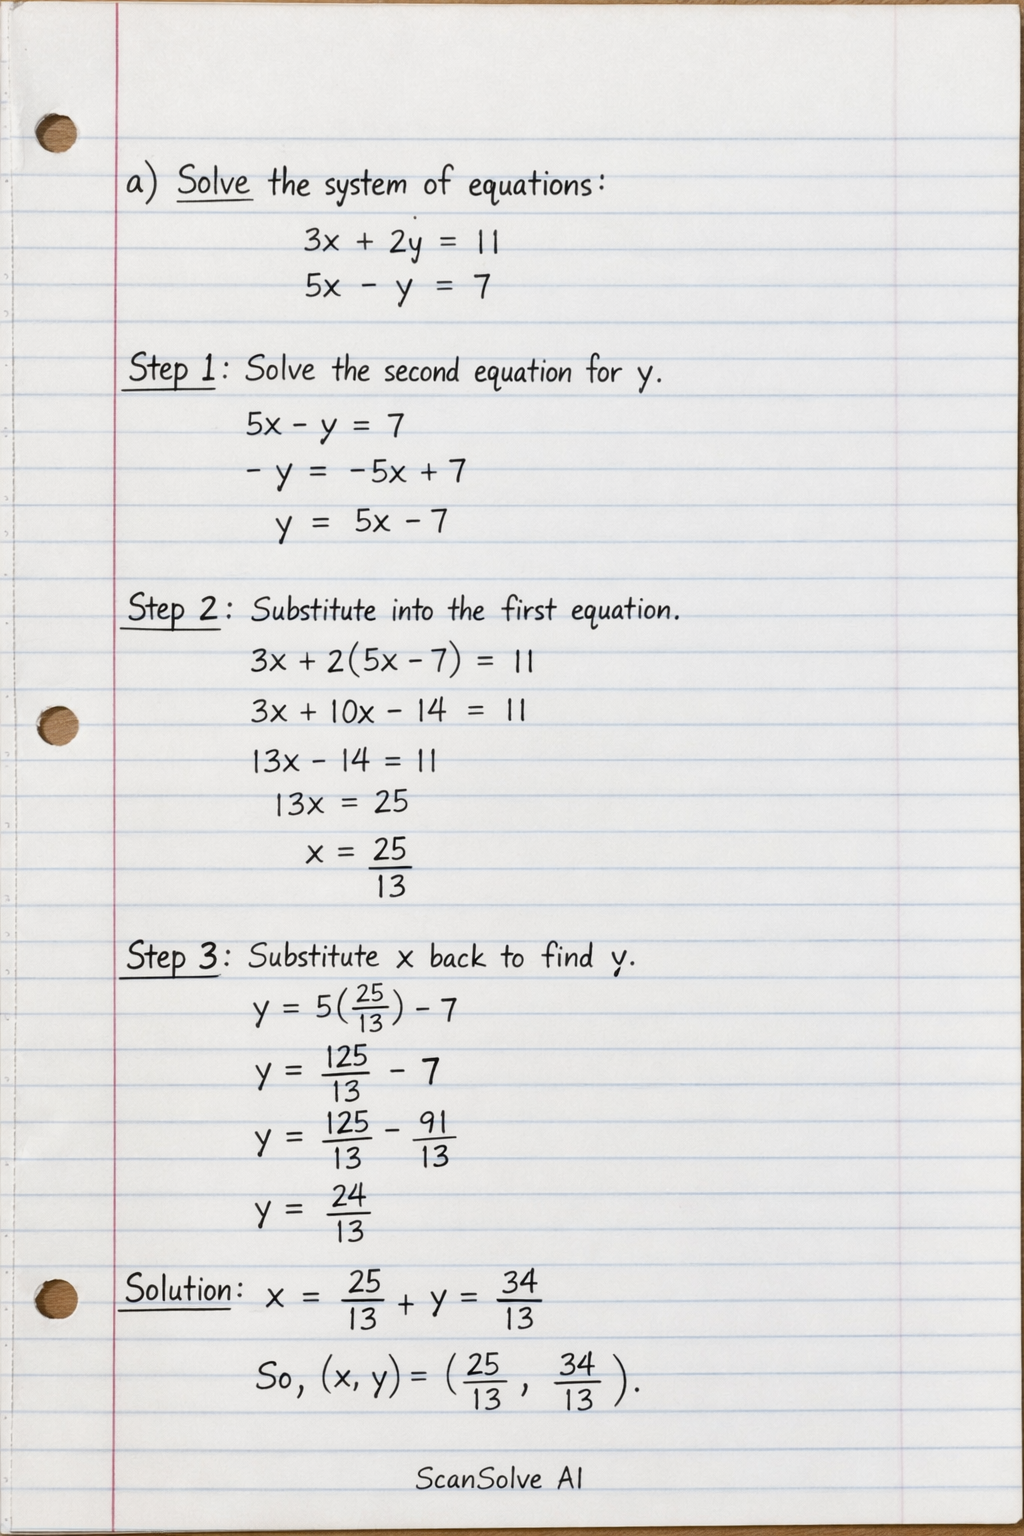 a) Solve the system of equations:
3x + 2y = 11
5x - y = 7
Step 1: Solve the second equation for y.
5x - y = 7
- y = -5x + 7
y = 5x - 7
Step 2: Substitute into the first equation.
3x + 2(5x - 7) = 11
3x + 10x - 14 = 11
13x - 14 = 11
13x = 25
x = 25/13
Step 3: Substitute x back to find y.
y = 5(25/13) - 7
y = 125/13 - 7
y = 125/13 - 91/13
y = 24/13
Solution: x = 25/13 + y = 34/13
So, (x, y) = (25/13, 34/13).
ScanSolve AI